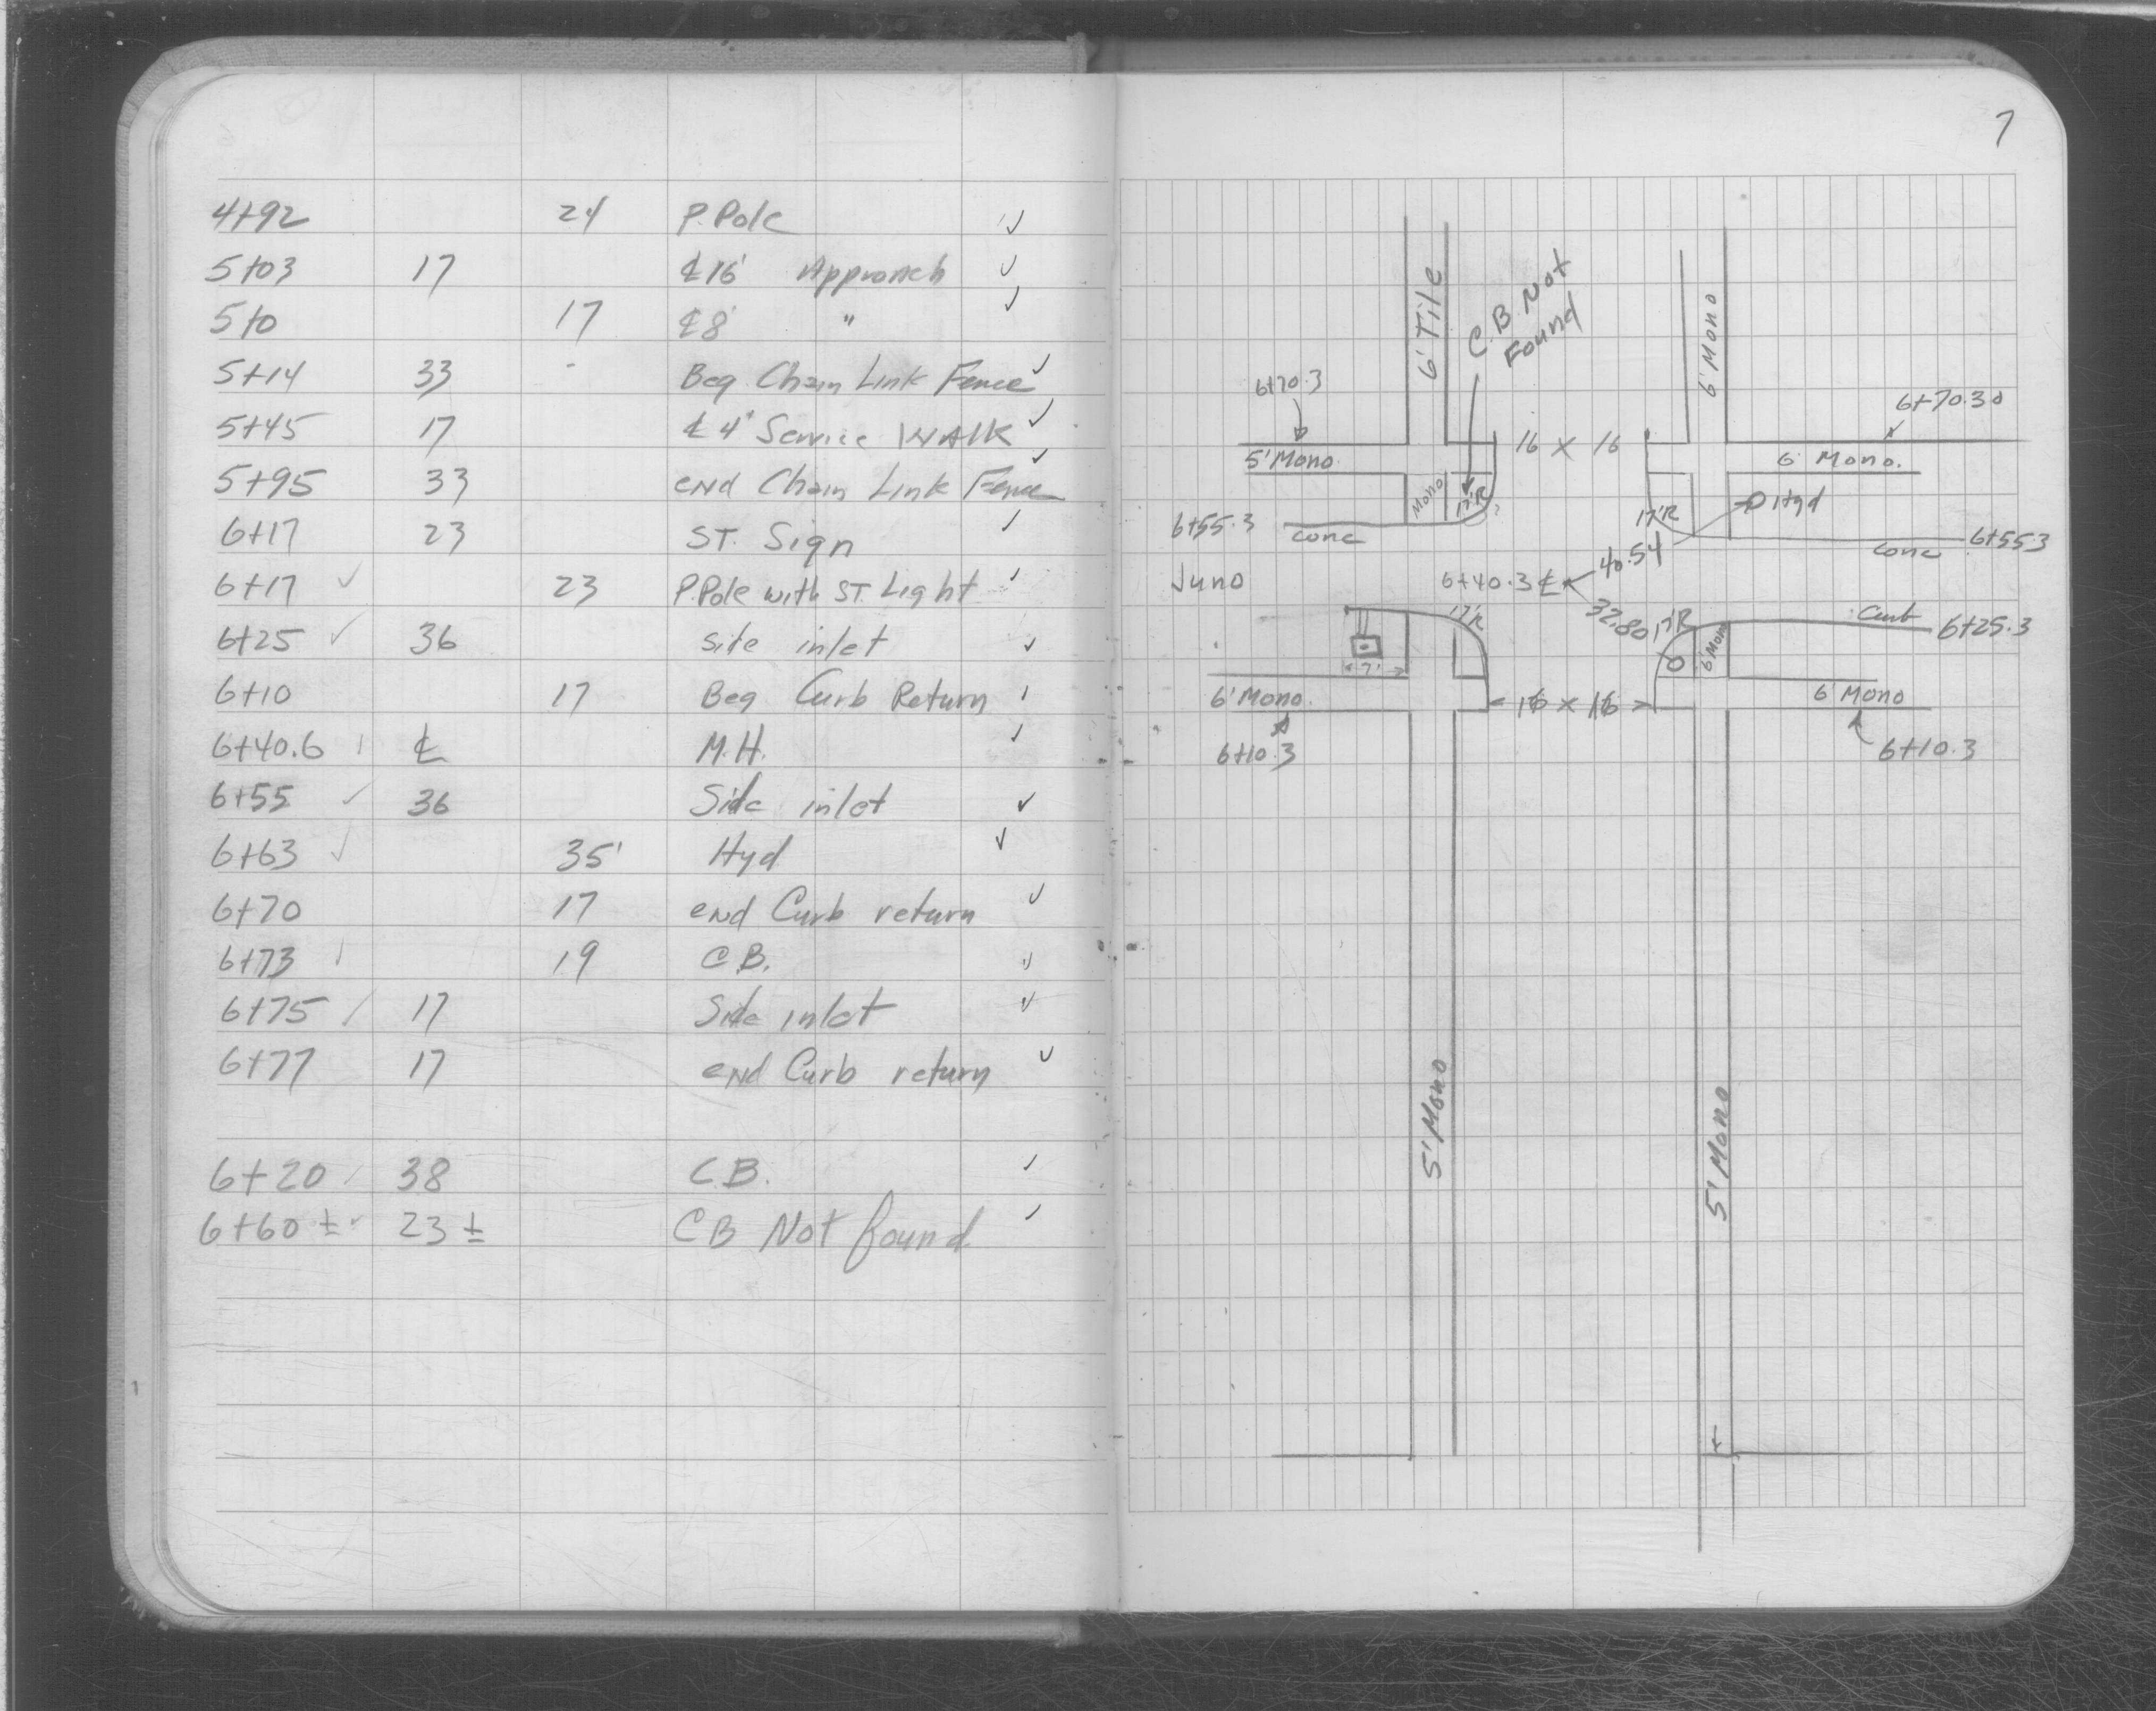 4+92 24 P.Pole
5+03 17 ℄ 16' Approach
5+0 17 ℄ 8' "
5+14 33 Beg Chain Link Fence
5+45 17 ℄ 4' Service WALK
5+95 33 end Chain Link Fence
6+17 23 ST. Sign
6+17 ✓ 23 P.Pole with ST. Light
6+25 ✓ 36 side inlet
6+10 17 Beg Curb Return
6+40.6 ℄ M.H.
6+55 ✓ 36 Side inlet
6+63 ✓ 35' Hyd
6+70 17 end Curb return
6+73 19 C.B.
6+75 17 Side inlet
6+77 17 end Curb return
6+20 38 C.B.
6+60 ± 23 ± CB Not found
7
6' Tile
C.B. Not
Found
6' Mono
6+70.3
6+70.30
16 x 16
5' Mono
6' Mono.
Mono
17'R
17'R
Hyd
6+55.3
conc
conc
6+55.3
40.54
Juno
6+40.3 ℄
32.80
17'R
17'R
Curb
6+25.3
7'
6' Mono
6' Mono.
16 x 16
6' Mono
6+10.3
6+10.3
5' Mono
5' Mono